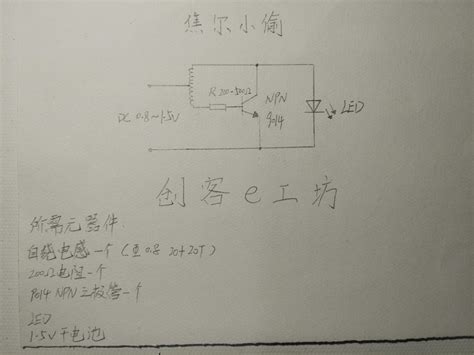 焦尔小偷
R 200~500Ω
NPN
9014
LED
DC 0.8~1.5V
创客e工坊
所需元器件
自绕电感一个（直0.8 20+20T）
200Ω电阻一个
9014 NPN三极管一个
LED
1.5V干电池